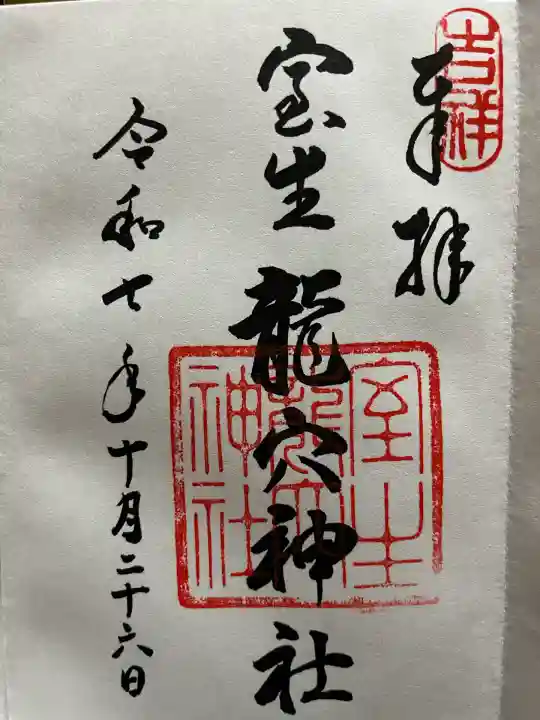 吉祥
奉拝
室生龍穴神社
室生龍穴神社
令和七年十月二十六日